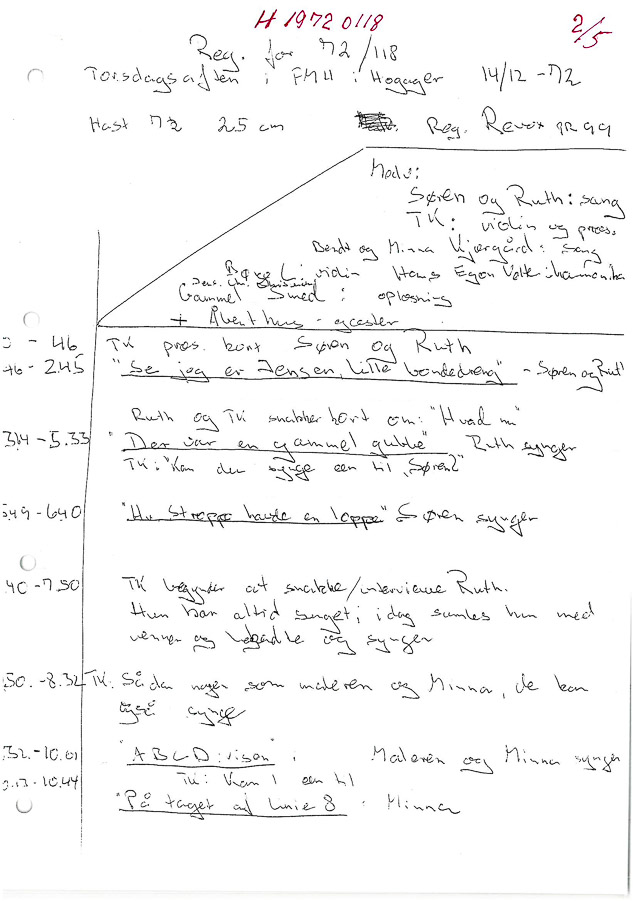 H 1972 0118
2/5
Reg. for 72/118
Torsdagsaften i FMH i Hogager 14/12-72
Hast 7½ 25 cm Reg. Revox
Medv:
Søren og Ruth: sang
TK: violin og præs.
Bendt og Minna Kjærgård: sang
violin Hans Egon harmonika
Gammel Smed: oplæsning
+ Åbent hus - gæster
- 46 TK præs. kort Søren og Ruth
46 - 2.45 "Se jeg er Jensen, lille bondedreng" - Søren og Ruth
Ruth og TK snakker kort om: "Hvad nu"
3.14 - 5.33 "Der var en gammel gubbe" Ruth synger
TK: "Kan du synge een til Søren?"
5.49 - 6.40 "Hr. Streppe havde en loppe" Søren synger
40 - 7.50 TK begynder at snakke/interviewe Ruth.
Hun har altid sunget; i dag samles hun med
venner og og synger
50. - 8.32 TK: Sådan nogen som maleren og Minna, de kan
også synge
32. - 10.01 "ABCD: visen": Maleren og Minna synger
TK: Kan I een til
10.44 "På taget af linie 8": Minna